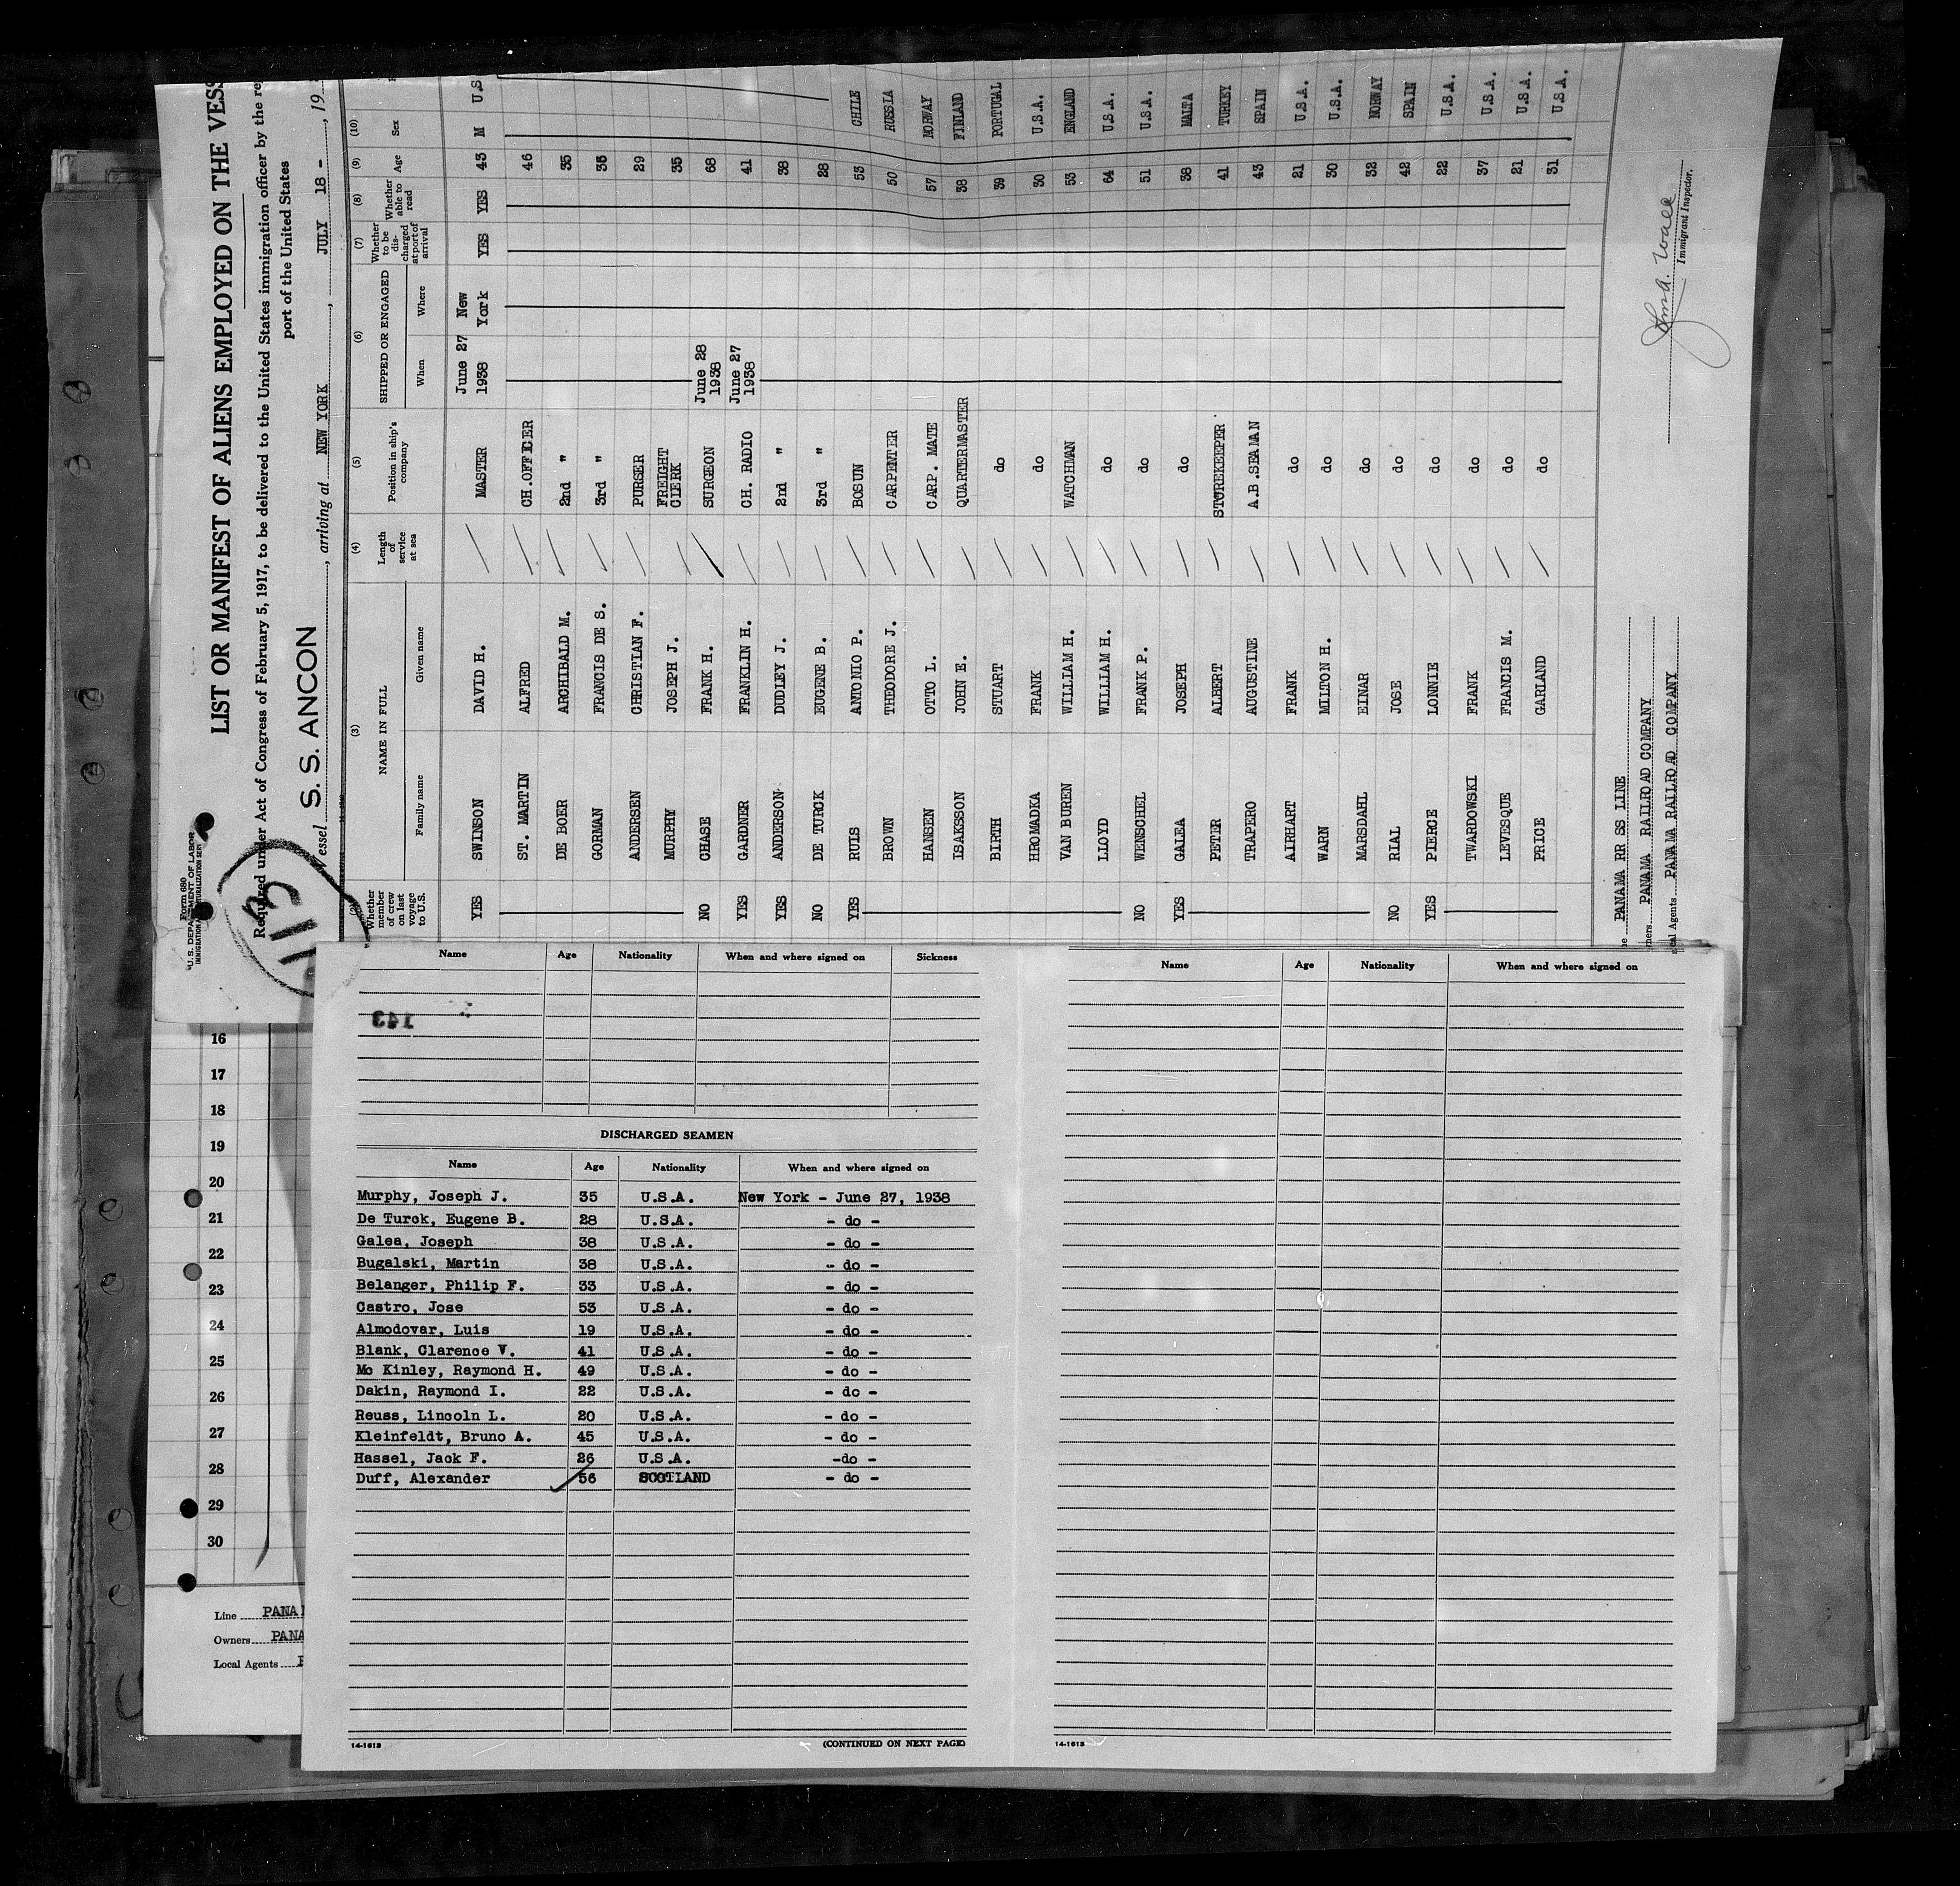 Form 680
U.S. DEPARTMENT OF LABOR
LIST OR MANIFEST OF ALIENS EMPLOYED ON THE VESS
Required under Act of Congress of February 5, 1917, to be delivered to the United States immigration officer by the re
port of the United States
Vessel S. S. ANCON, arriving at NEW YORK, JULY 18 -, 19
(2) (3) (4) (5) (6) (7) (8) (9) (10)
Whether member of crew on last voyage to U.S. NAME IN FULL Family name Given name Length of service at sea Position in ship's company SHIPPED OR ENGAGED When Where Whether to be discharged at port of arrival Whether able to read Age Sex
YES SWINSON DAVID H. MASTER June 27 1938 New York YES YES 43 M U.S
ST. MARTIN ALFRED CH.OFFICER 46
DE BOER ARCHIBALD M. 2nd " 35
GORMAN FRANCIS DE S. 3rd " 35
ANDERSEN CHRISTIAN F. PURSER 29
MURPHY JOSEPH J. FREIGHT CLERK 35
NO CHASE FRANK H. SURGEON June 28 1938 68
YES GARDNER FRANKLIN H. CH. RADIO June 27 1938 41
YES ANDERSON DUDLEY J. 2nd " 38
NO DE TURCK EUGENE B. 3rd " 28
YES RUIS ANTONIO P. BOSUN 53 CHILE
BROWN THEODORE J. CARPENTER 50 RUSSIA
HANSEN OTTO L. CARP. MATE 57 NORWAY
ISAKSSON JOHN E. QUARTERMASTER 38 FINLAND
BIRTH STUART do 39 PORTUGAL
HROMADKA FRANK do 30 U.S.A.
VAN BUREN WILLIAM H. WATCHMAN 53 ENGLAND
LLOYD WILLIAM H. do 64 U.S.A.
NO WENSCHEL FRANK P. do 51 U.S.A.
YES GALEA JOSEPH do 38 MALTA
PETER ALBERT STOREKEEPER 41 TURKEY
TRAPERO AUGUSTINE A.B.SEAMAN 43 SPAIN
AIRHART FRANK do 21 U.S.A.
WARN MILTON H. do 30 U.S.A.
MARSDAHL EINAR do 32 NORWAY
NO RIAL JOSE do 42 SPAIN
YES PIERCE LONNIE do 22 U.S.A.
TWARDOWSKI FRANK do 37 U.S.A.
LEVESQUE FRANCIS M. do 21 U.S.A.
PRICE GARLAND do 31 U.S.A.
PANAMA RR SS LINE
PANAMA RAILROAD COMPANY
cal Agents PANAMA RAILROAD COMPANY
Immigrant Inspector.
Name Age Nationality When and where signed on Sickness
143
DISCHARGED SEAMEN
Name Age Nationality When and where signed on
Murphy, Joseph J. 35 U.S.A. New York - June 27, 1938
De Turck, Eugene B. 28 U.S.A. - do -
Galea, Joseph 38 U.S.A. - do -
Bugalski, Martin 38 U.S.A. - do -
Belanger, Philip F. 33 U.S.A. - do -
Castro, Jose 53 U.S.A. - do -
Almodovar, Luis 19 U.S.A. - do -
Blank, Clarence V. 41 U.S.A. - do -
Mc Kinley, Raymond H. 49 U.S.A. - do -
Dakin, Raymond I. 22 U.S.A. - do -
Reuss, Lincoln L. 20 U.S.A. - do -
Kleinfeldt, Bruno A. 45 U.S.A. - do -
Hassel, Jack F. 26 U.S.A. -do -
Duff, Alexander 56 SCOTLAND - do -
14-1613 (CONTINUED ON NEXT PAGE)
Name Age Nationality When and where signed on
14-1613
16
17
18
19
20
21
22
23
24
25
26
27
28
29
30
Line PANA
Owners PANA
Local Agents